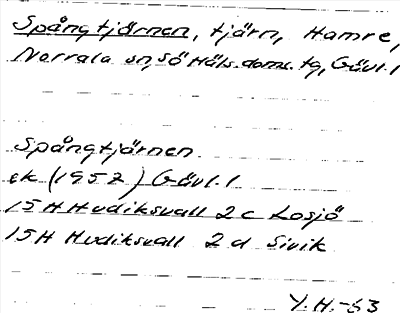 Spångtjärnen, tjärn, Hamre,
Norrala sn, sö Häls. doms. tg, Gävl. l
Spångtjärnen
ek (1957) Gävl. l
15H Hudiksvall 2c Losjö
15H Hudiksvall 2d Sivik
Y.H.-63